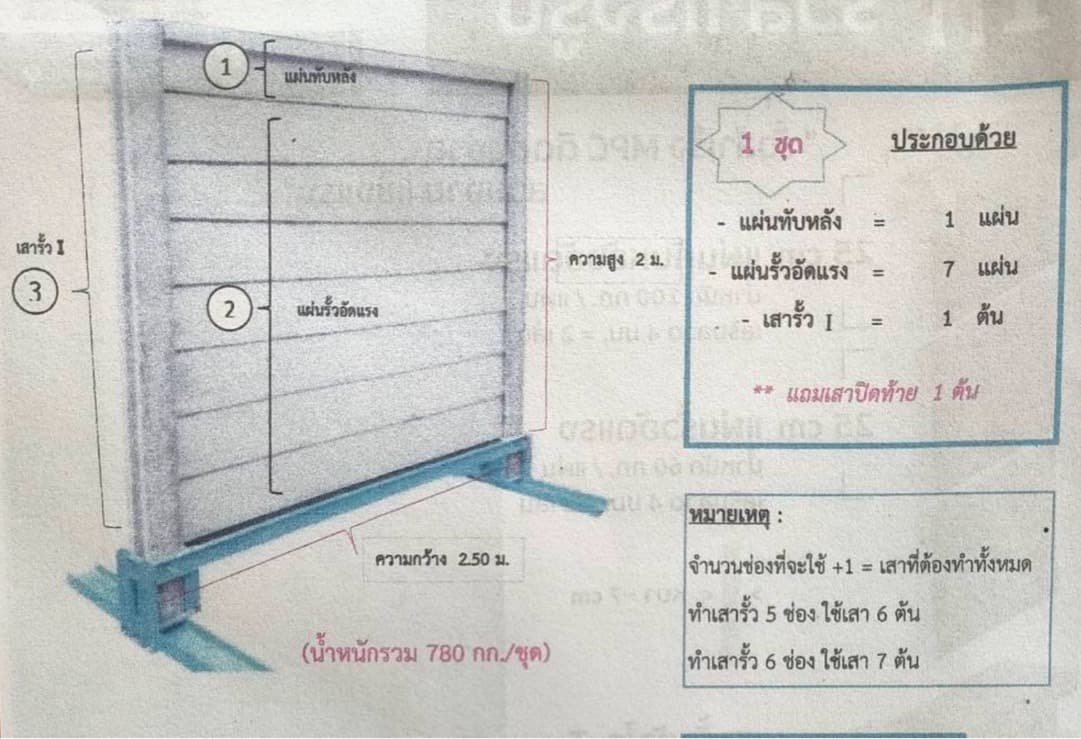 1
แผ่นทับหลัง
เสารั้ว I
3
2
แผ่นรั้วอัดแรง
ความสูง 2 ม.
ความกว้าง 2.50 ม.
(น้ำหนักรวม 780 กก./ชุด)
1 ชุด
ประกอบด้วย
- แผ่นทับหลัง = 1 แผ่น
- แผ่นรั้วอัดแรง = 7 แผ่น
- เสารั้ว I = 1 ต้น
** แถมเสาปิดท้าย 1 ต้น
หมายเหตุ :
จำนวนช่องที่จะใช้ +1 = เสาที่ต้องทำทั้งหมด
ทำเสารั้ว 5 ช่อง ใช้เสา 6 ต้น
ทำเสารั้ว 6 ช่อง ใช้เสา 7 ต้น